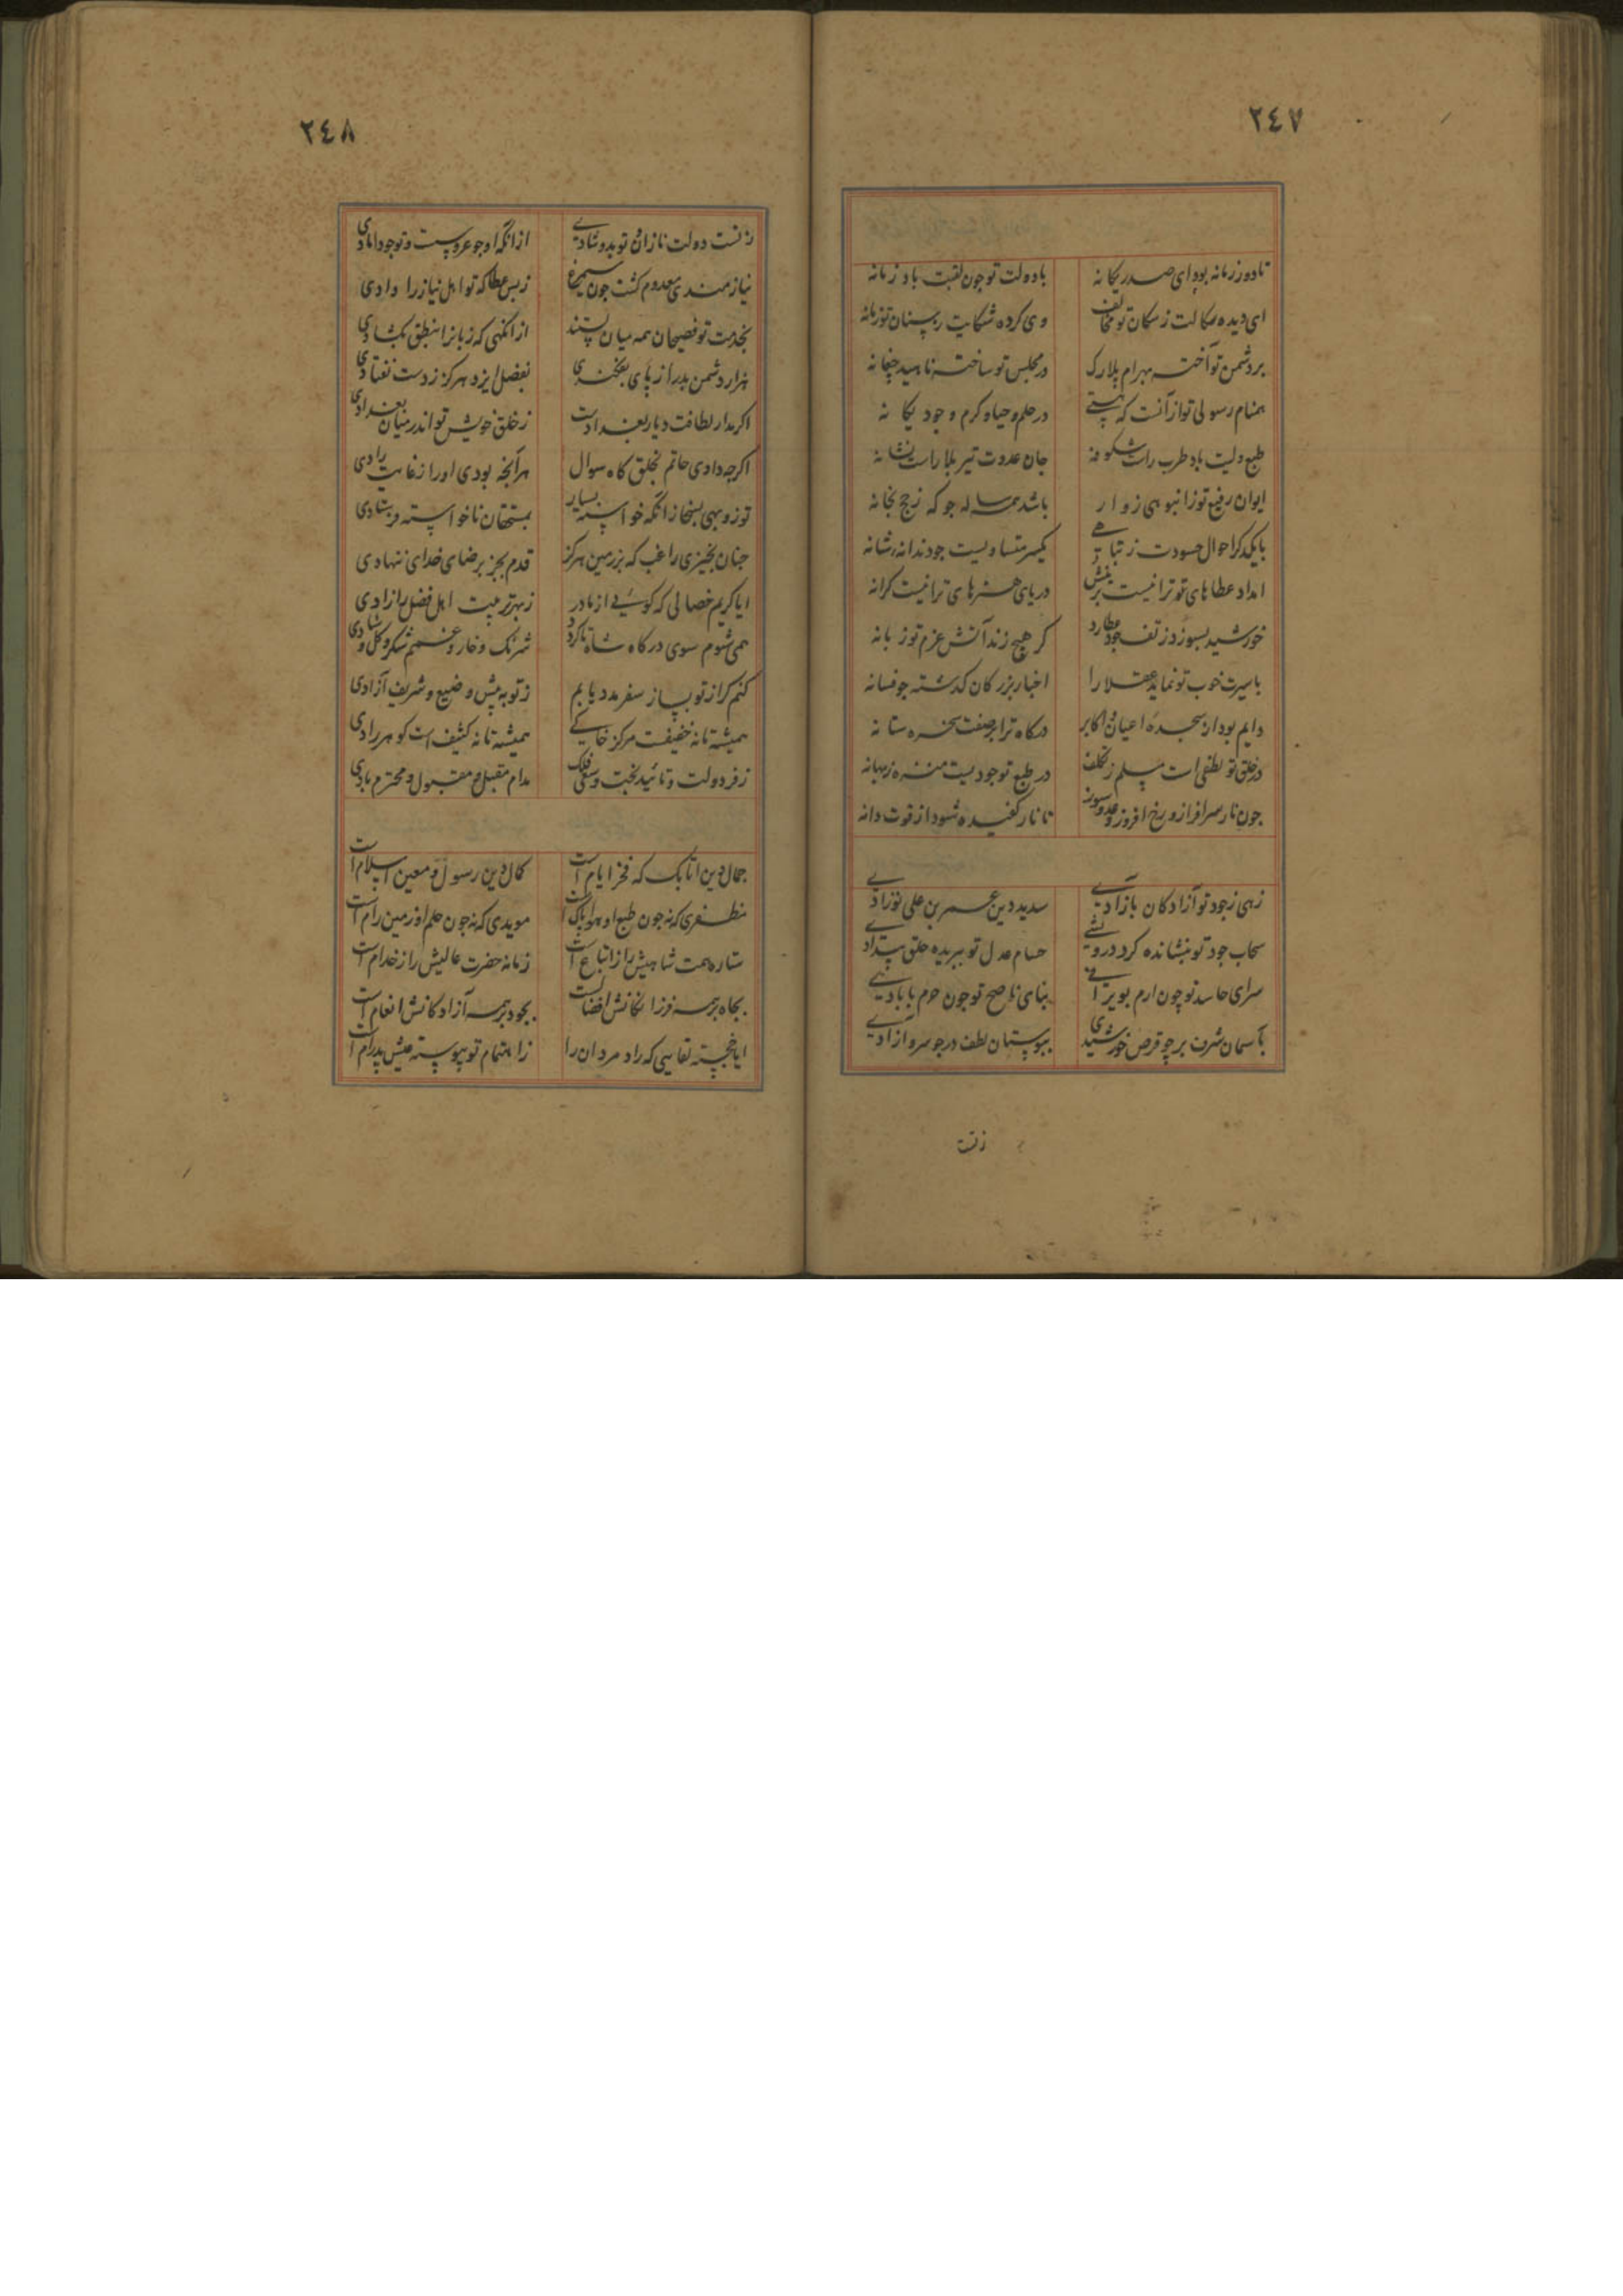 ٢٤٧
تا دور زمانه بود ای صدر یکانه بادولت تو جون لقبت باد زمانه
ای دیده رسالت ز تو مخالف وی کرده شکایت ز سنان تو زمانه
بر دشمن تو آخته بهرام بلارک در مجلس تو ساخته ناهید چغانه
همنام رسولی تو از آنست که هستی در حلم و حیا و کرم و جود یکانه
طبع ولیت باد طرب راست شکوفه جان عدوت تیر بلا راست نشانه
ایوان رفیع تو ز انبوهی زوار باشد همه ساله جو که زج نخانه
با یکدکر احوال حسودت ز تباهی یکسر متساویست جو دندانه شانه
امداد عطاهای تو را نیست دریای هنرهای ترا نیست کرانه
خورشید بسوزد ز تف خود عطارد کر هیچ زند آتش عزم تو زبانه
با سیرت خوب تو نماید عقلا را اخبار بزرکان کذشته جو فسانه
دایم بود از سجده اعیان و اکابر درکاه ترا بر صفت سخره ستانه
در خلق تو لطفی است مسلم ز تکلف در طبع تو جودیست منزه ز بهانه
جون نار سرافراز و رخ افروز و عدو سوز تا نار کفیده شود از قوت دانه
زهی ز جود تو آزادکان بازادی سدید دین عمر بن علی نوزادی
سحاب جود تو بنشانده کرد درویشی حسام عدل تو ببریده حلق بیدادی
سرای حاسد تو چون ارم بویرانی بنای ناصح تو جون حرم بابادی
بآسمان شرف بر جو قرص خورشیدی ببوستان لطف در جو سرو آزادی
زتست
٢٤٨
زتست دولت نازان و تو بدو شادی از انکه او جو عروسست و تو جو دامادی
نیازمندی معدوم کشت جون سیمرغ ز بس عطا که تو اهل نیاز را دادی
بخدمت تو فصیحان همه میان بستند از انکهی که زبان را بنطق بکشادی
هزار دشمن بد را ز پای بفکندی بفضل ایزد هرکز ز دست نفتادی
اکر مدار لطافت دیار بغدادست ز خلق خویش تو اندر میان بغدادی
اکرجه دادی حاتم بخلق کاه سوال هر آنجه بودی او را ز غایت رادی
تو زو بهی بسخا زانکه خواسته بسیار بمستحقان ناخواسته فرستادی
جنان بخیری راغب که بر زمین هرکز قدم بجز برضای خدای ننهادی
ایا کریم خصالی که کوئی از مادر ز بهر تربیت اهل فضل را زادی
همی شوم سوی درکاه شاه تا کردد شرنک و خار و غمم شکر و کل و شادی
کنم کر از تو بساز سفر مدد یابم ز تو به پیش وضیع و شریف آزادی
همیشه تا نه خفیفست مرکز خاکی همیشه تا نه کثیف است کوهر بادی
ز فر دولت و تائید بخت و سعی فلک مدام مقبل و مقبول و محترم بادی
جمال دین اتابک که فخر ایام است کمال دین رسول و معین اسلام است
مظفری که نه جون طبع او هوا پاک است مویدی که نه جون حلم او زمین رام است
ستاره همت شاهیش را ز اتباع است زمانه حضرت عالیش را ز خدام است
بجاه بر همه فرزانکانش افضالست بجود بر همه آزادکانش انعام است
ایا خجسته لقایی که راد مردان را ز اهتمام تو پیوسته عیش پدرام است